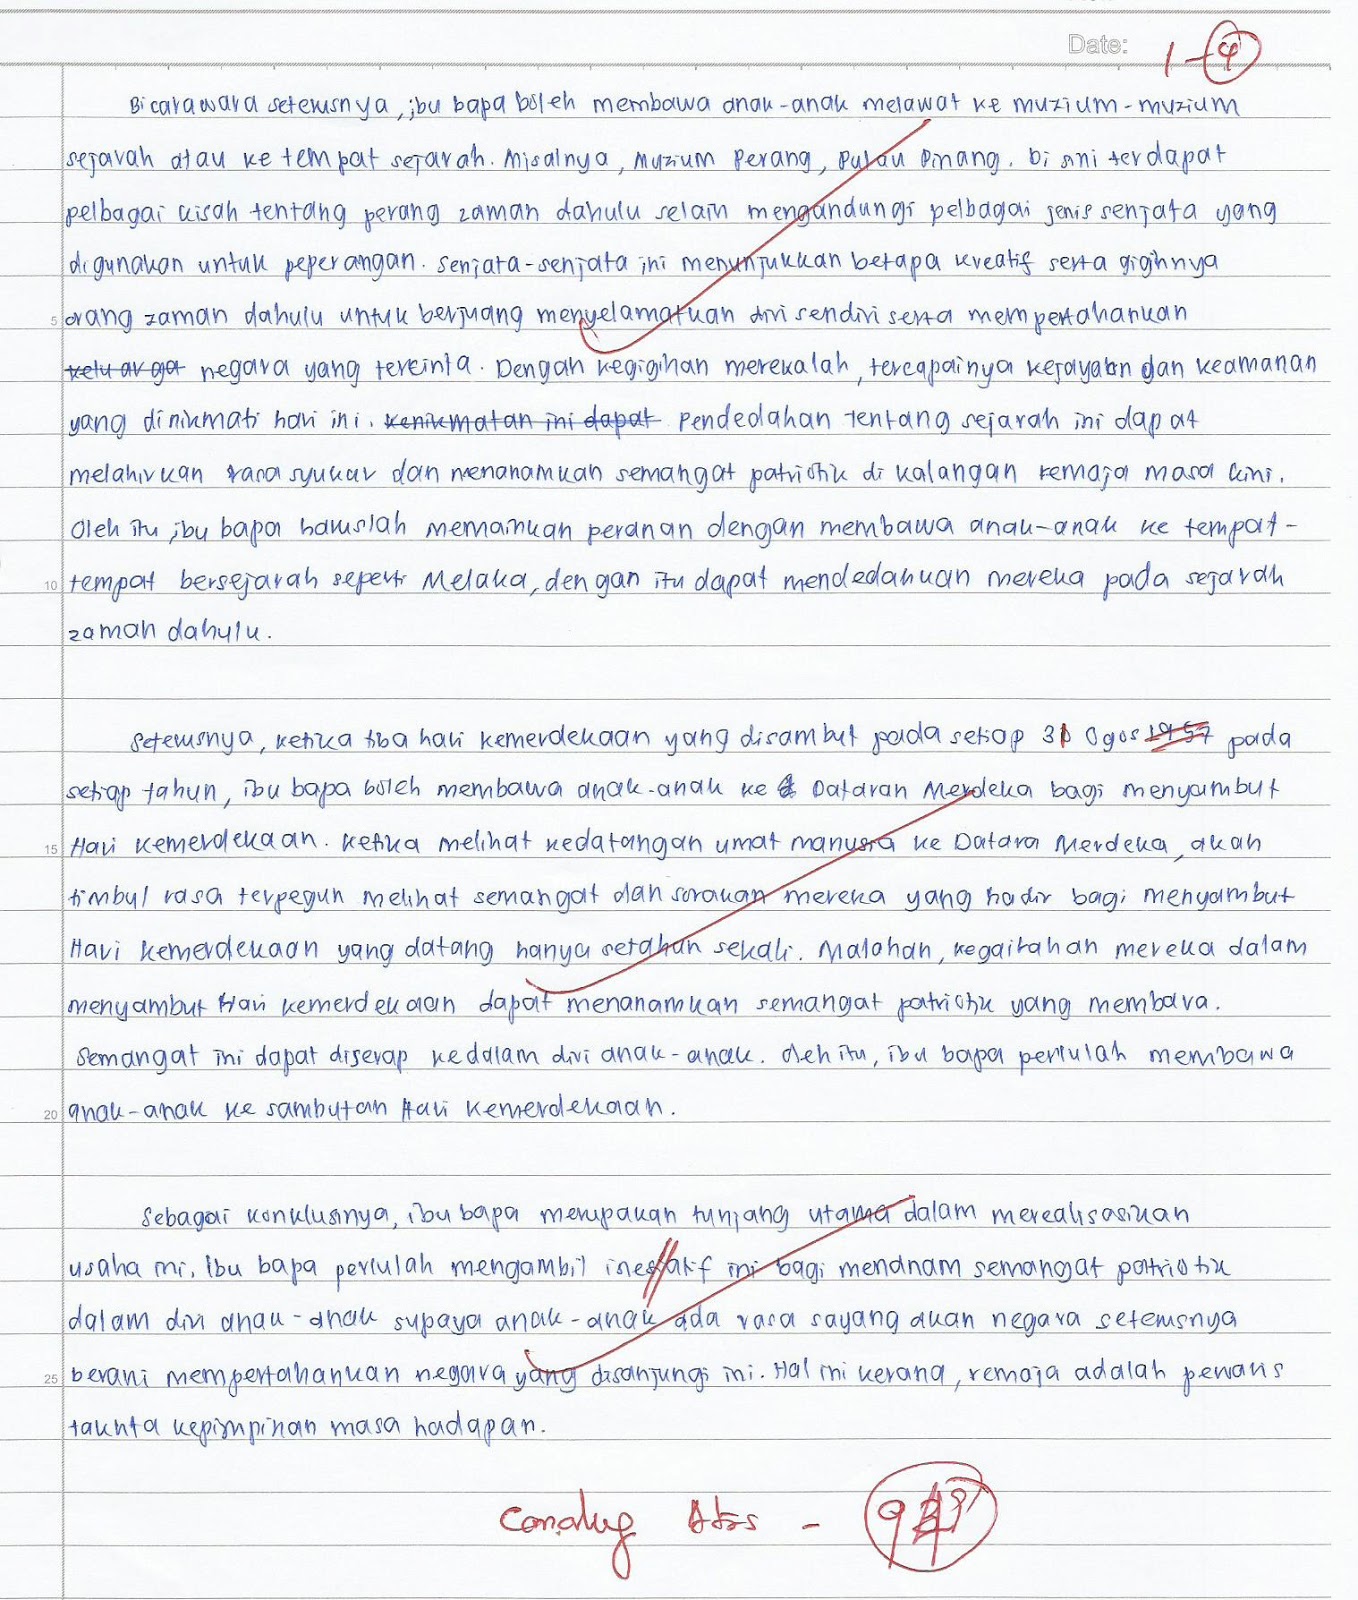 Date: 1-4
Bicarawara seterusnya, ibu bapa boleh membawa anak-anak melawat ke muzium-muzium
sejarah atau ke tempat sejarah. Misalnya, Muzium Perang, Pulau Pinang. Di sini terdapat
pelbagai kisah tentang perang zaman dahulu selain mengandungi pelbagai jenis senjata yang
digunakan untuk peperangan. Senjata-senjata ini menunjukkan betapa kreatif serta gigihnya
5 orang zaman dahulu untuk berjuang menyelamatkan diri sendiri serta mempertahankan
keluarga negara yang tercinta. Dengan kegigihan merekalah, tercapainya kejayaan dan keamanan
yang dinikmati hari ini. kenikmatan ini dapat Pendedahan tentang sejarah ini dapat
melahirkan rasa syukur dan menanamkan semangat patriotik di kalangan remaja masa kini.
Oleh itu, ibu bapa haruslah memainkan peranan dengan membawa anak-anak ke tempat-
10 tempat bersejarah seperti Melaka, dengan itu dapat mendedahkan mereka pada sejarah
zaman dahulu.
Seterusnya, ketika tiba hari kemerdekaan yang disambut pada setiap 31 Ogos 1957 pada
setiap tahun, ibu bapa boleh membawa anak-anak ke Dataran Merdeka bagi menyambut
15 Hari Kemerdekaan. Ketika melihat kedatangan umat manusia ke Datara Merdeka, akan
timbul rasa terpegun melihat semangat dan sorakan mereka yang hadir bagi menyambut
Hari Kemerdekaan yang datang hanya setahun sekali. Malahan, kegairahan mereka dalam
menyambut Hari Kemerdekaan dapat menanamkan semangat patriotik yang membara.
Semangat ini dapat diserap kedalam diri anak-anak. Oleh itu, ibu bapa perlulah membawa
20 anak-anak ke sambutan Hari Kemerdekaan.
Sebagai konklusinya, ibu bapa merupakan tunjang utama dalam merealisasikan
usaha ini. Ibu bapa perlulah mengambil inesiatif ini bagi menanam semangat patriotik
dalam diri anak-anak supaya anak-anak ada rasa sayang akan negara seterusnya
25 berani mempertahankan negara yang disanjungi ini. Hal ini kerana, remaja adalah pewaris
takhta kepimpinan masa hadapan.